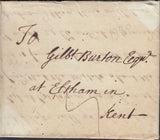 To
Gilbt Burton Esqr.
at Eltham in
Kent